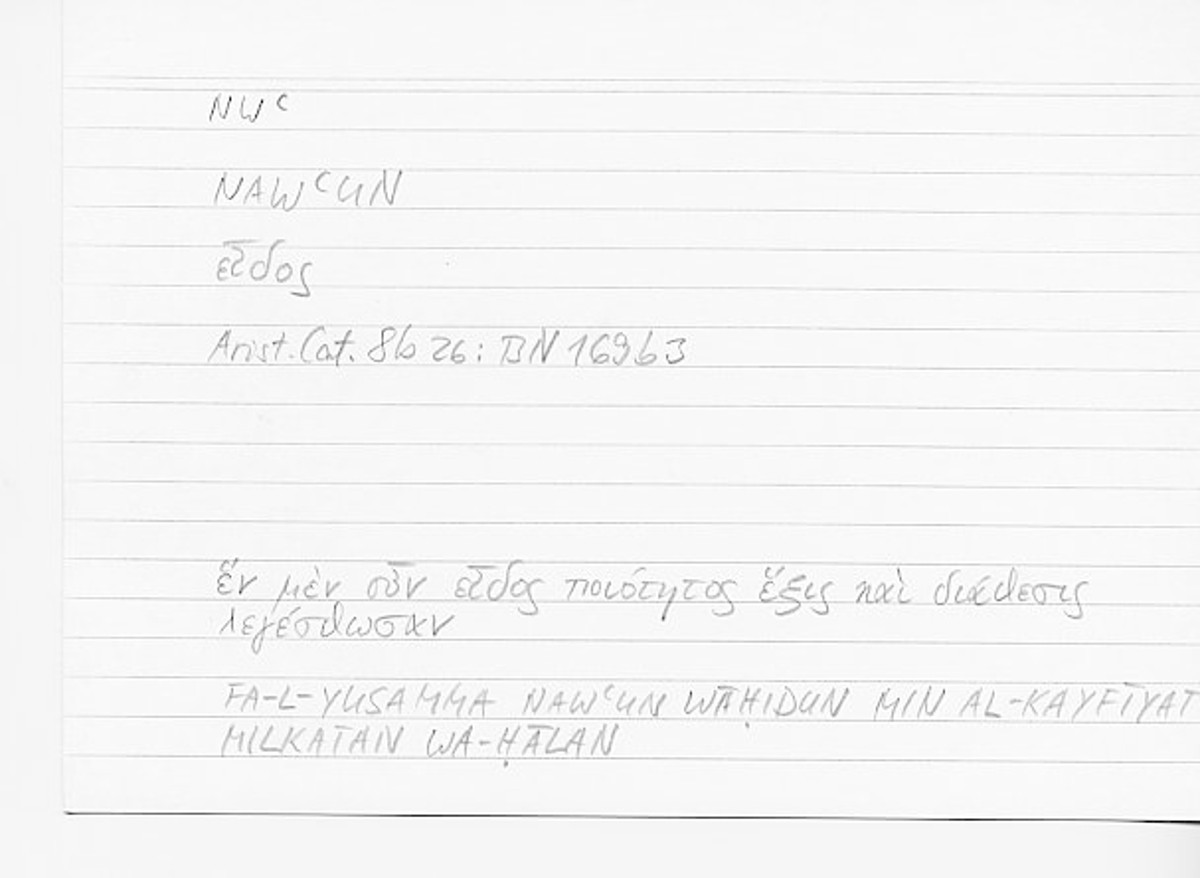 NWᶜ
NAWᶜUN
εἶδος
Arist. Cat. 8b 26: BN 169b3
ἕν μὲν οὖν εἶδος ποιότητος ἕξις καὶ διάθεσις
λεγέσθωσαν
FA-L-YUSAMMA NAWᶜUN WĀḤIDUN MIN AL-KAYFĪYAT
MILKATAN WA-ḤĀLAN